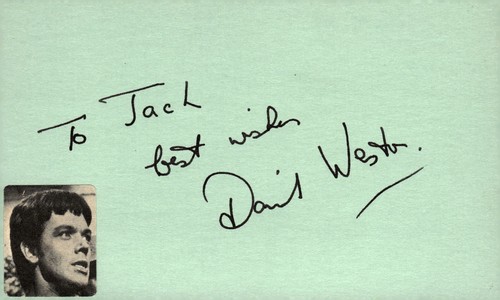 To Jack
best wishes
David Weston.